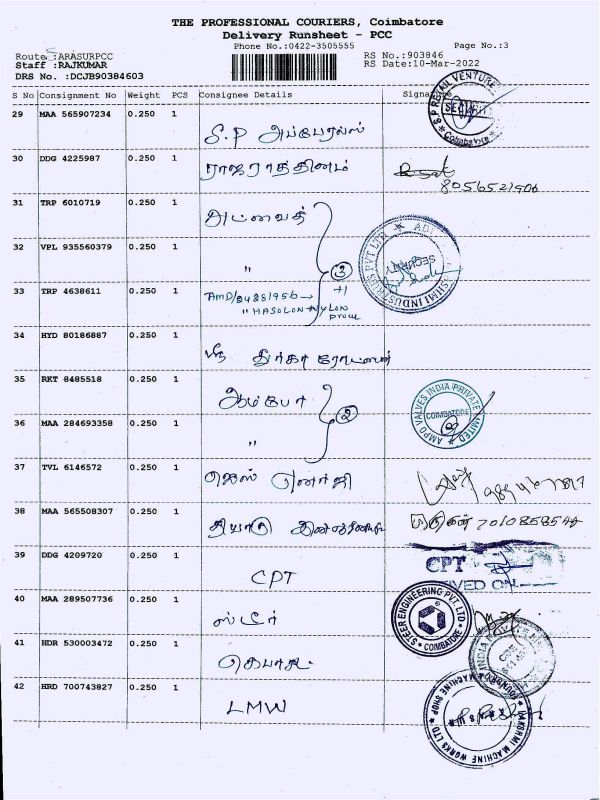 THE PROFESSIONAL COURIERS, Coimbatore
Delivery Runsheet - PCC
Phone No.:0422-3505555 Page No.:3
Route :ARASURPCC RS No.:903846
Staff :RAJKUMAR RS Date:10-Mar-2022
DRS No. :DCJB90384603
S No Consignment No Weight PCS Consignee Details Signature
29 MAA 565907234 0.250 1
S.P அப்பேரல்ஸ்
SECURITY
Coimbatore
30 DDG 4225987 0.250 1
ராஜரத்தினம்
8056521906
31 TRP 6010719 0.250 1
அட்வைத்
32 VPL 935560379 0.250 1
"
3
+1
SECURITY
33 TRP 4638611 0.250 1
"
34 HYD 80186887 0.250 1
ஸ்ரீ துர்கா
35 RKT 8485518 0.250 1
ஆம்போ
2
AMPO VALVES INDIA (PRIVATE) LIMITED
COIMBATORE
36 MAA 284693358 0.250 1
"
37 TVL 6146572 0.250 1
ஜெஸ் எனர்ஜி
38 MAA 565508307 0.250 1
முருகன்
39 DDG 4209720 0.250 1
CPT
CPT
IVED ON
40 MAA 289507736 0.250 1
ஸ்டீர்
STEER ENGINEERING PVT. LTD.
COIMBATORE
41 HDR 530003472 0.250 1
42 HRD 700743827 0.250 1
LMW
LAKSHMI MACHINE WORKS LTD
MACHINE SHOP